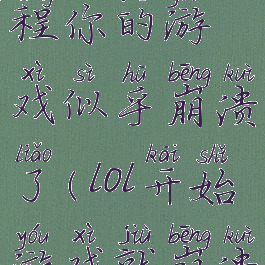 程你的游
xì sì hū bēng kuì
戏似乎崩溃
liǎo kāi shǐ
了(lol开始
yóu xì jiù bēng kuì
游戏就崩溃